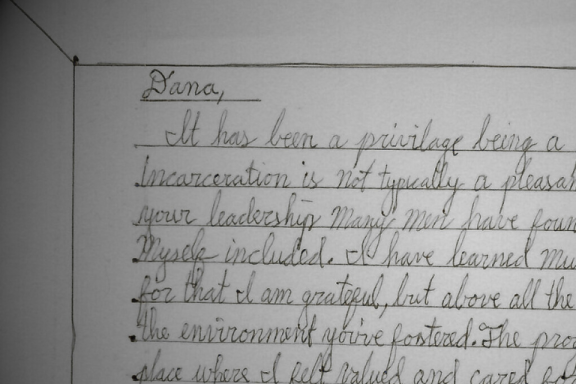 Dana,
It has been a privilage being a
Incarceration is not typically a
your leadership many men have
Myself included. I have learned
for that I am grateful, but above all the
the environment you've fostered. The
place where I felt valued and cared